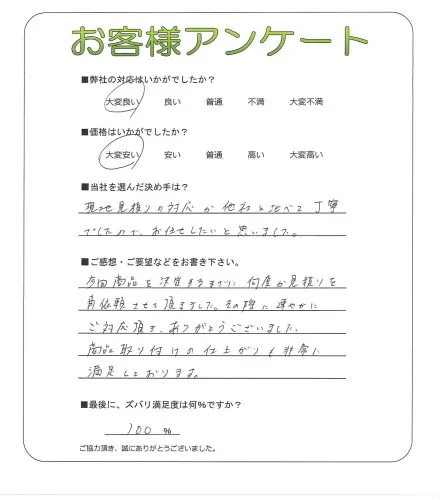 お客様アンケート
■弊社の対応はいかがでしたか？
大変良い 良い 普通 不満 大変不満
■価格はいかがでしたか？
大変安い 安い 普通 高い 大変高い
■当社を選んだ決め手は？
現地見積りの対応が他社と比べて丁寧
でしたので、お任せしたいと思いました。
■ご感想・ご要望などをお書き下さい。
今回商品を決定するまでに何度か見積りを
再依頼させて頂きました。その際に速やかに
ご対応頂き、ありがとうございました。
商品取り付けの仕上がりも非常に
満足しております。
■最後に、ズバリ満足度は何％ですか？
100 %
ご協力頂き、誠にありがとうございました。